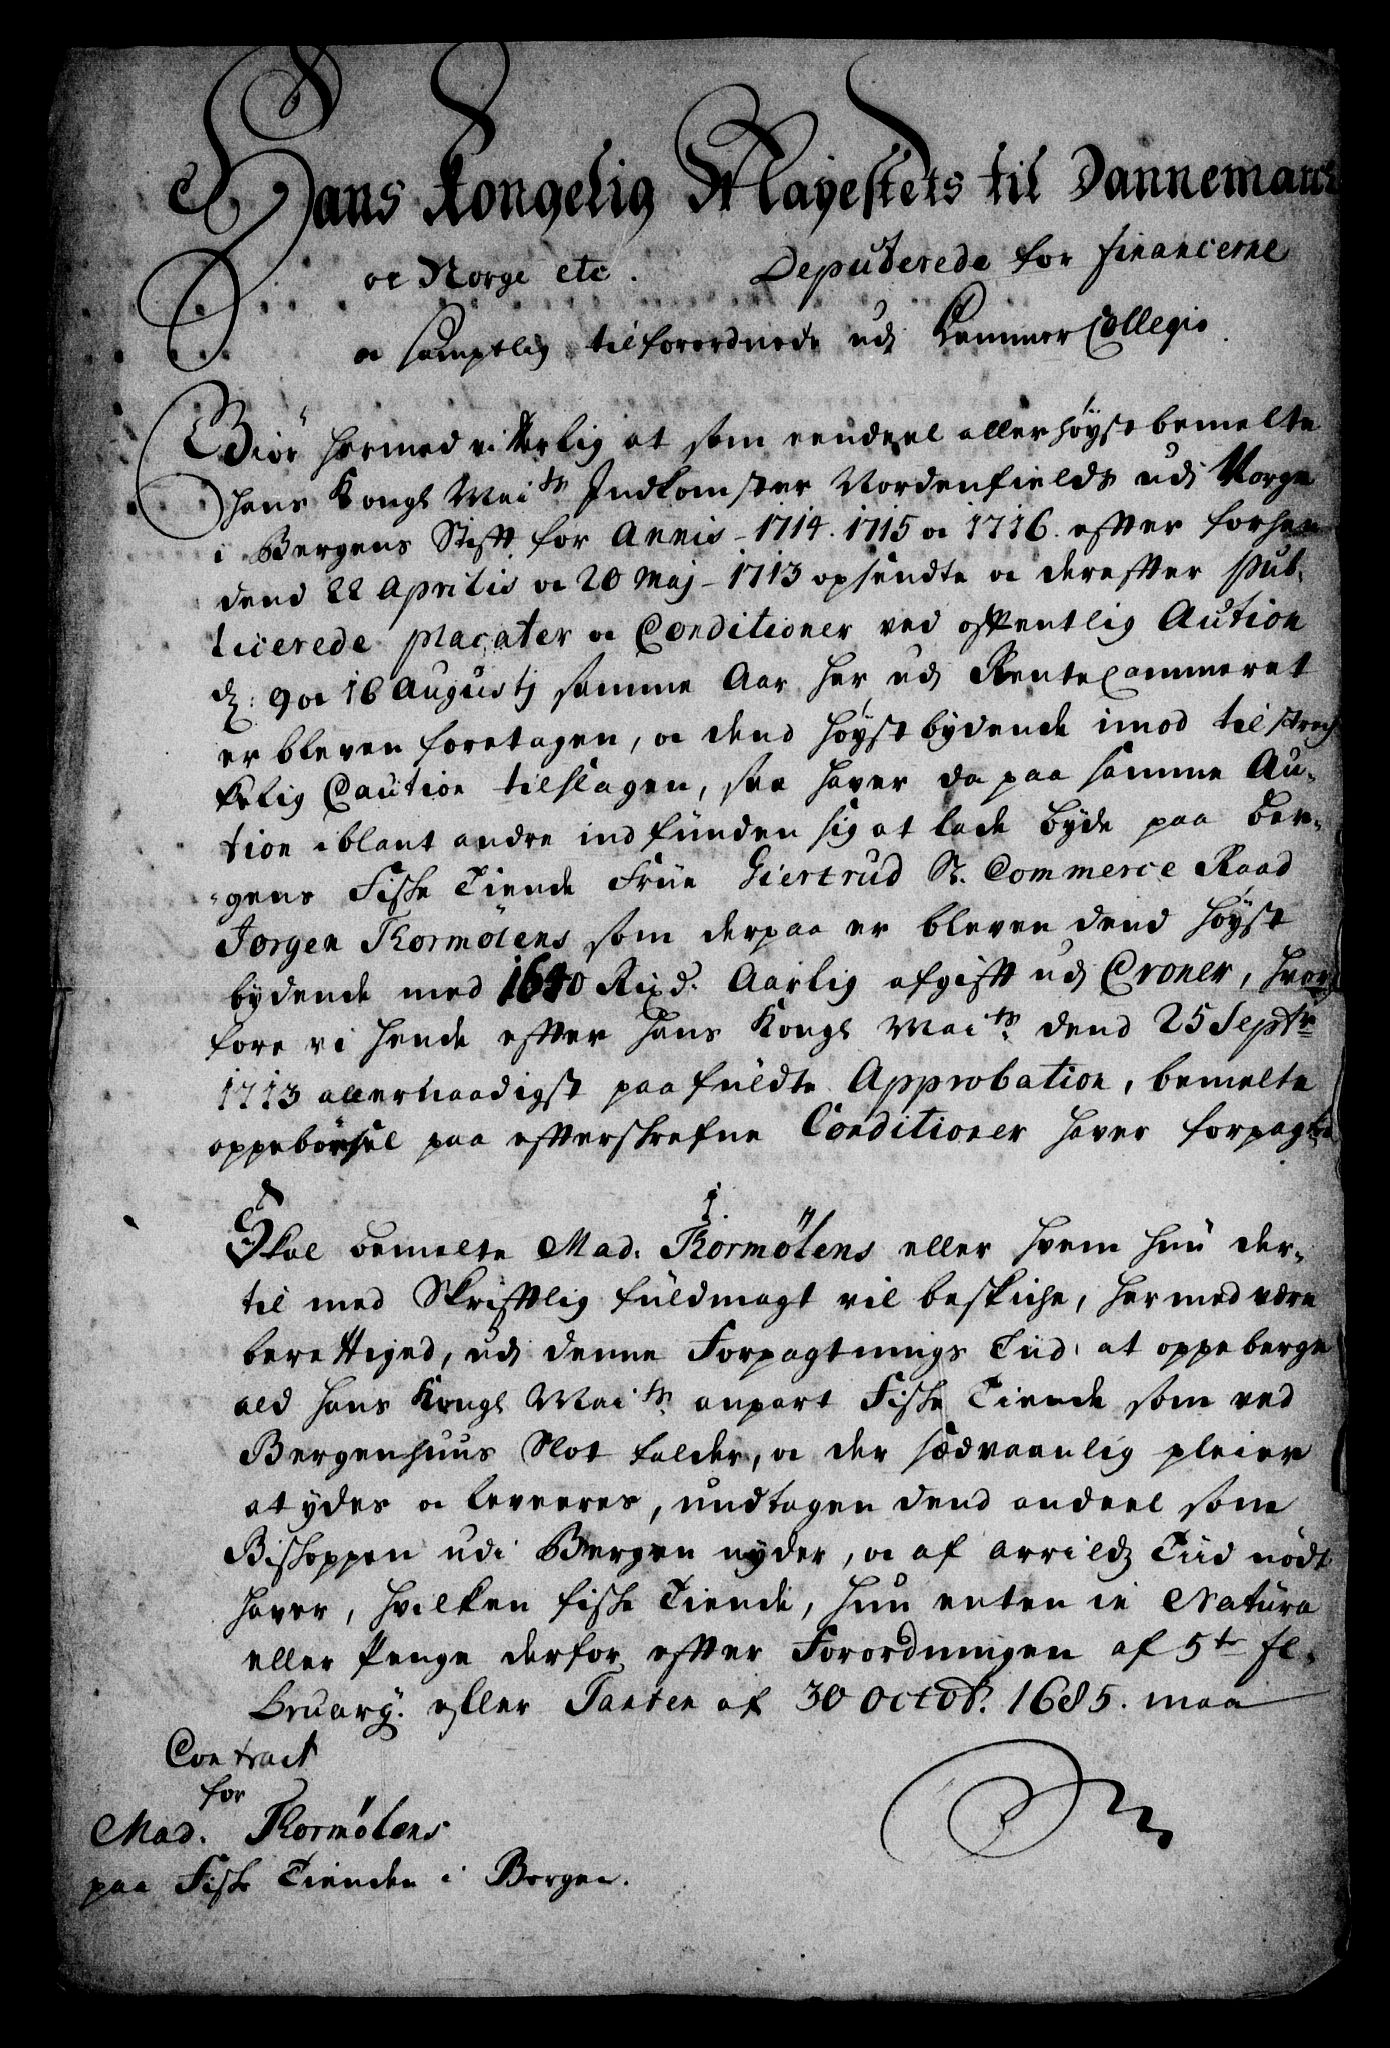 Hans Kongelig Mayestets til Dannemarck
oc Norge etc. Deputerede for financerne
oc samptlig tilforordnede udj Cammer Collegio.
Giör hermed vitterlig at som eendeel allerhöyst bemelte
Hans Kongl Mai.ts Indkomster Nordenfields udj Norge
i Bergens Stift for Annis 1714. 1715 oc 1716. efter forhen
dend 22 Aprilis oc 20 Maj 1713 opsendte oc derefter Pub-
licerede Placater oc Conditioner ved offentlig Aution
d: 9 oc 16 Augustj samme Aar her udj Rente Cammeret
er bleven foretagen, oc dend höystbydende imod tilstreck
kelig Caution tilslagen, saa haver da paa samme Au-
tion iblant andre indfunden sig at lade byde paa Ber-
gens Fiske Tiende Frue Giertrud Sl. Commerce Raad
Jørgen Thormølens som derpaa er bleven dend höyst
bydende med 1640 Rixd. Aarlig afgift udj Croner, hvor
fore vi hende efter Hans Kongl Mai.ts dend 25 Septr
1713 allernaadigst paafuldte Approbation, bemelte
oppebörsel paa efterskrefne Conditioner haver forpagtet
1.
Skal bemelte Mad. Thormölens eller hvem hun der-
til med Skriftlig fuldmagt vil beskiche, hermed være
berettiged, udj denne Forpagtnings Tiid at oppeberge
ald Hans Kongl Mai.ts anpart Fiske Tiende som ved
Bergenhuus Slot falder, oc der sædvaanlig pleier
at ydes oc leveres, undtagen dend andeel som
Biskoppen udi Bergen nyder, oc af arrildz Tiid nödt
haver, hvilken fiske Tiende, hun enten in Natura
eller Penge derfor efter Forordningen af 5te Fe-
bruarij. eller Taxten af 30 Octob. 1685. maa
Contract
for
Mad. Thormølens
paa Fiske Tienden i Bergen.